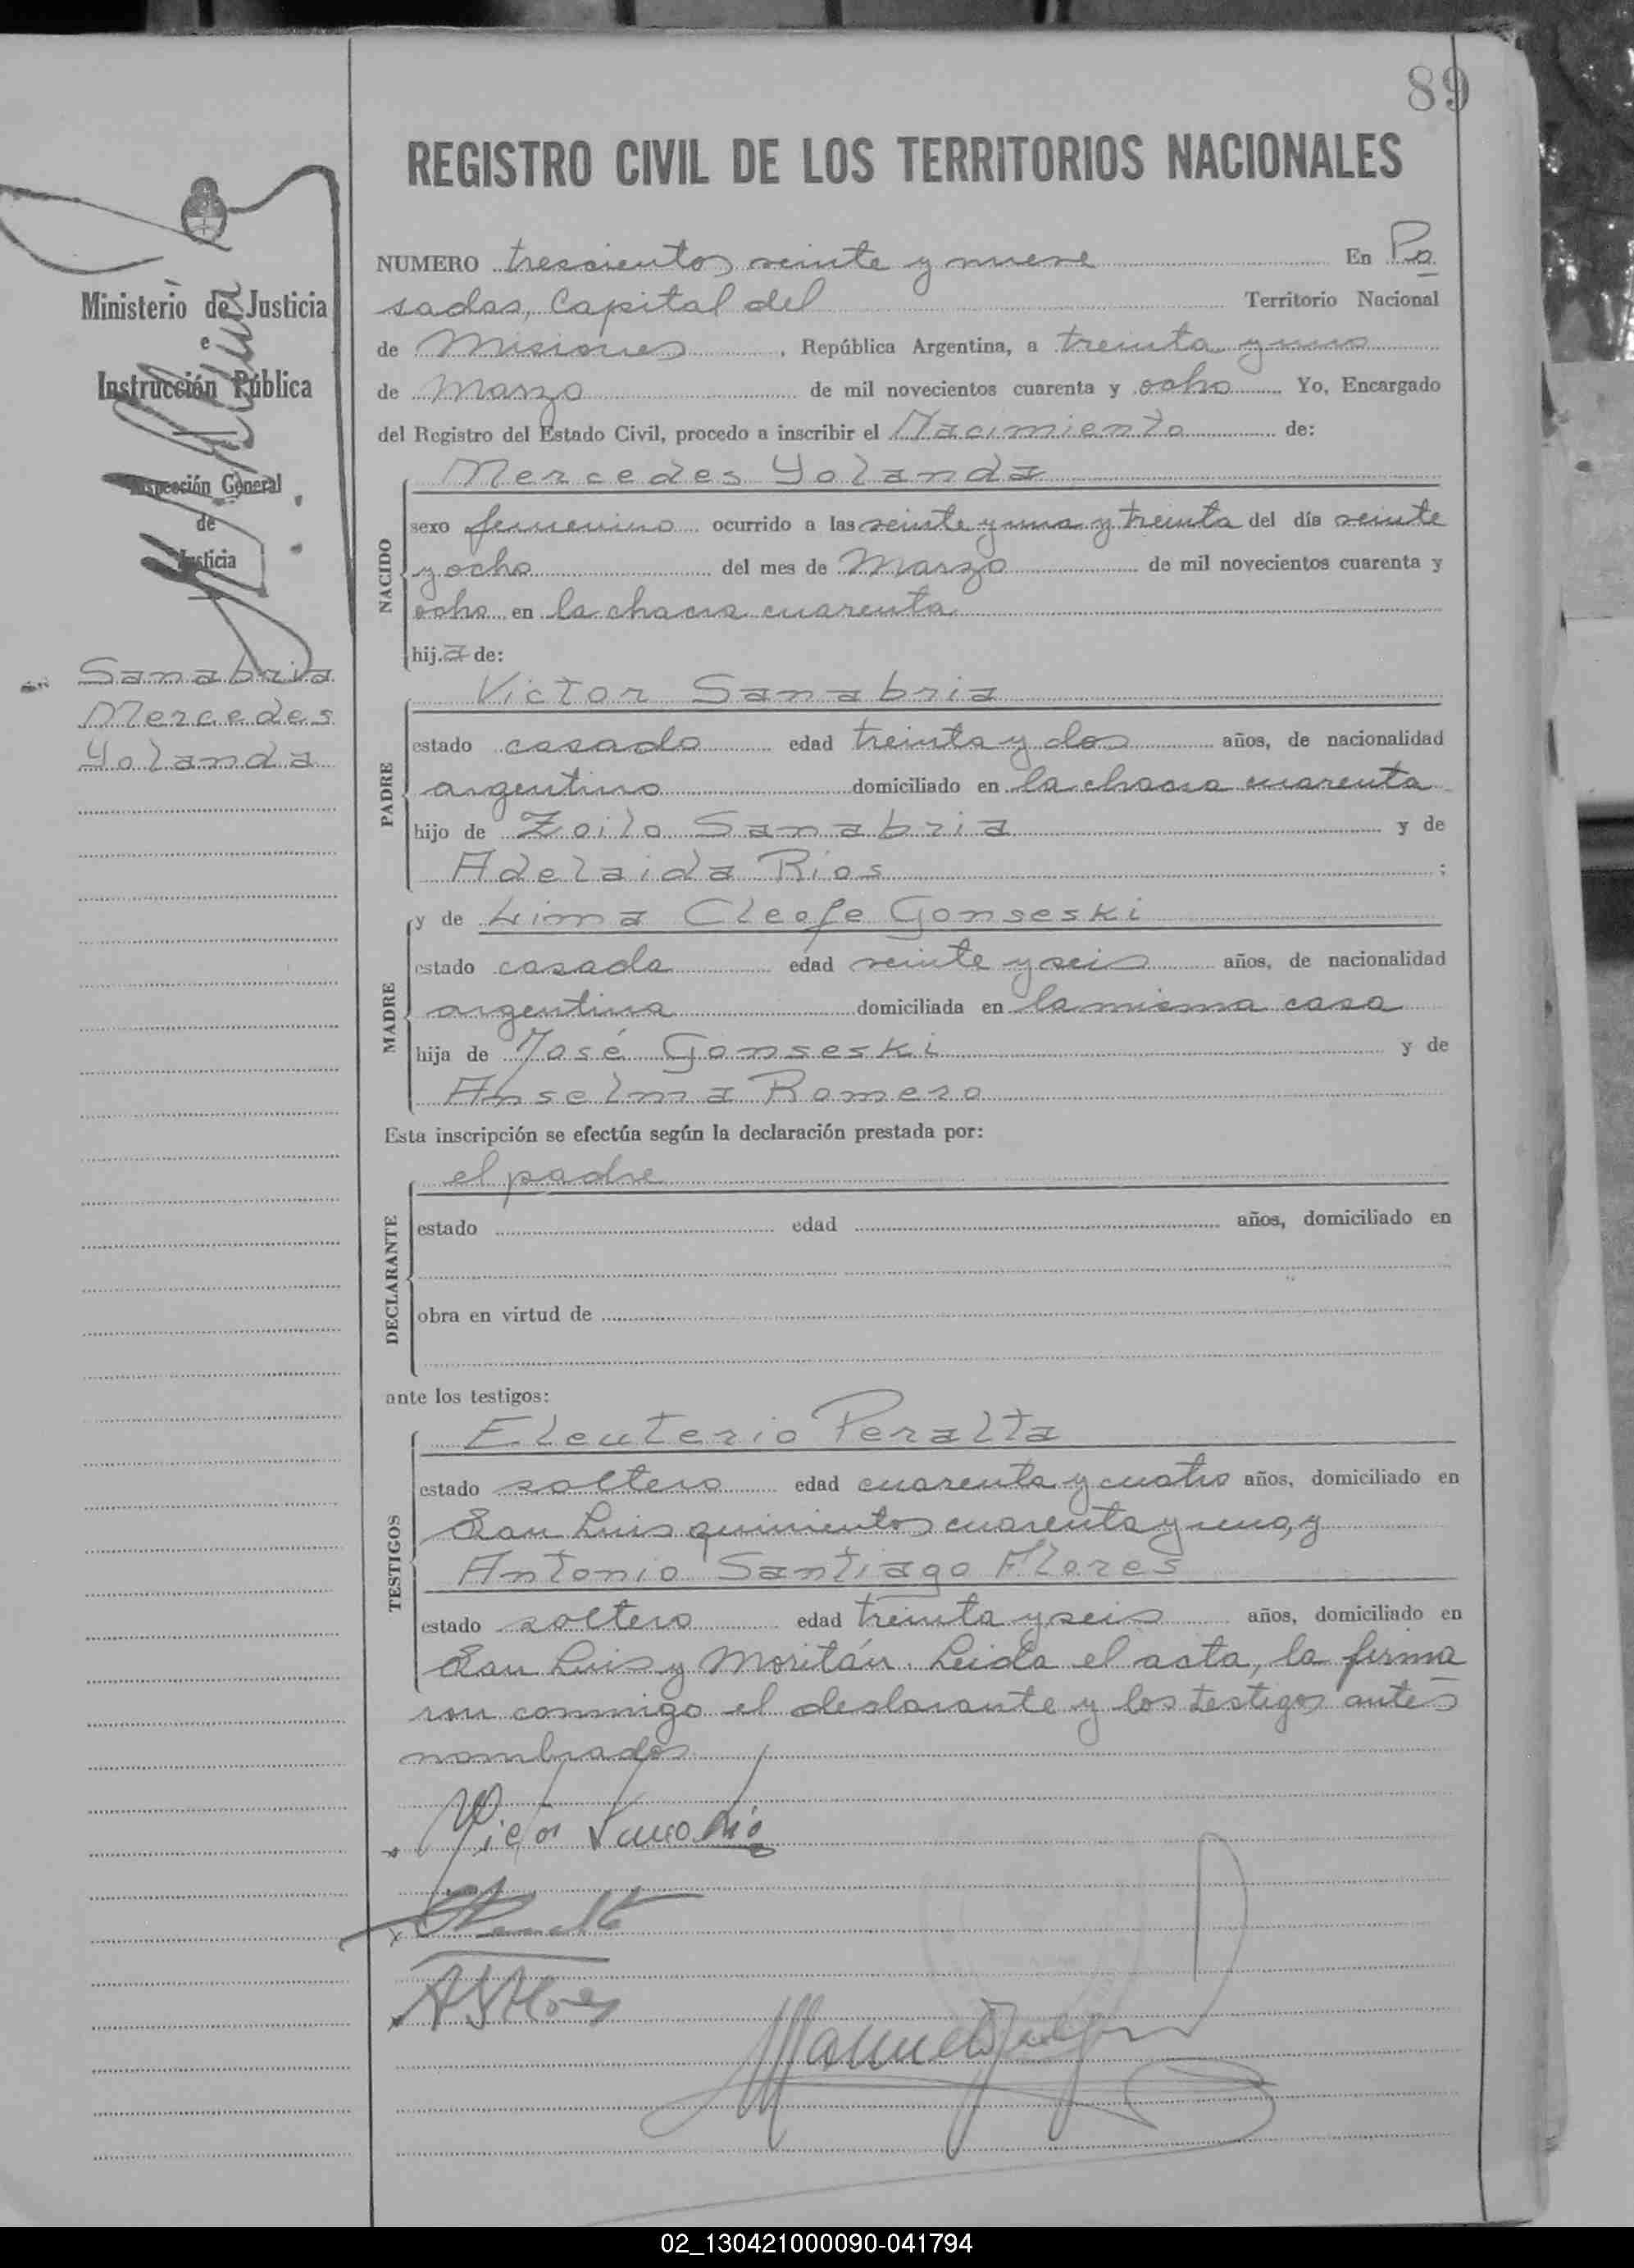 89
REGISTRO CIVIL DE LOS TERRITORIOS NACIONALES
Ministerio de Justicia
e
Instrucción Pública
Inspección General
de
Justicia
Sanabria
Mercedes
Yolanda
NUMERO trescientos veinte y nueve En Po
sadas, Capital del Territorio Nacional
de Misiones, República Argentina, a treinta y uno
de Marzo de mil novecientos cuarenta y ocho Yo, Encargado
del Registro del Estado Civil, procedo a inscribir el Nacimiento de:
Mercedes Yolanda
NACIDO
sexo femenino ocurrido a las veinte y una y treinta del día veinte
y ocho del mes de Marzo de mil novecientos cuarenta y
ocho en la chacra cuarenta
hija de:
Victor Sanabria
PADRE
estado casado edad treinta y dos años, de nacionalidad
argentino domiciliado en la chacra cuarenta
hijo de Zoilo Sanabria y de
Adelaida Rios;
y de Lima Cleofe Gonseski
MADRE
estado casada edad veinte y seis años, de nacionalidad
argentina domiciliada en la misma casa
hija de José Gonseski y de
Anselma Romero
Esta inscripción se efectúa según la declaración prestada por:
el padre
DECLARANTE
estado edad años, domiciliado en
obra en virtud de
ante los testigos:
Eleuterio Peralta
TESTIGOS
estado soltero edad cuarenta y cuatro años, domiciliado en
San Luis quinientos cuarenta y uno, y
Antonio Santiago Flores
estado soltero edad treinta y seis años, domiciliado en
San Luis y Moritán. Leida el acta, la firma
ron conmigo el declarante y los testigos antes
nombrados
Victor Sanabria
A S Flores
Manuel
02_130421000090-041794